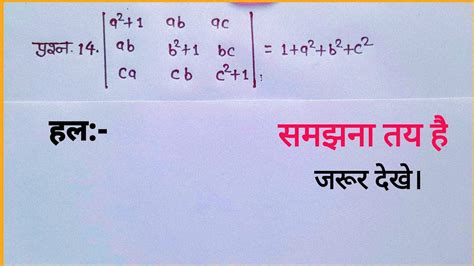 प्रश्न. 14. | a²+1 ab ac |
| ab b²+1 bc | = 1+a²+b²+c²
| ca cb c²+1 |
हल:-
समझना तय है
जरूर देखे।